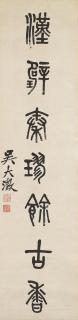 漢甓秦璆餘古香
吳大澂